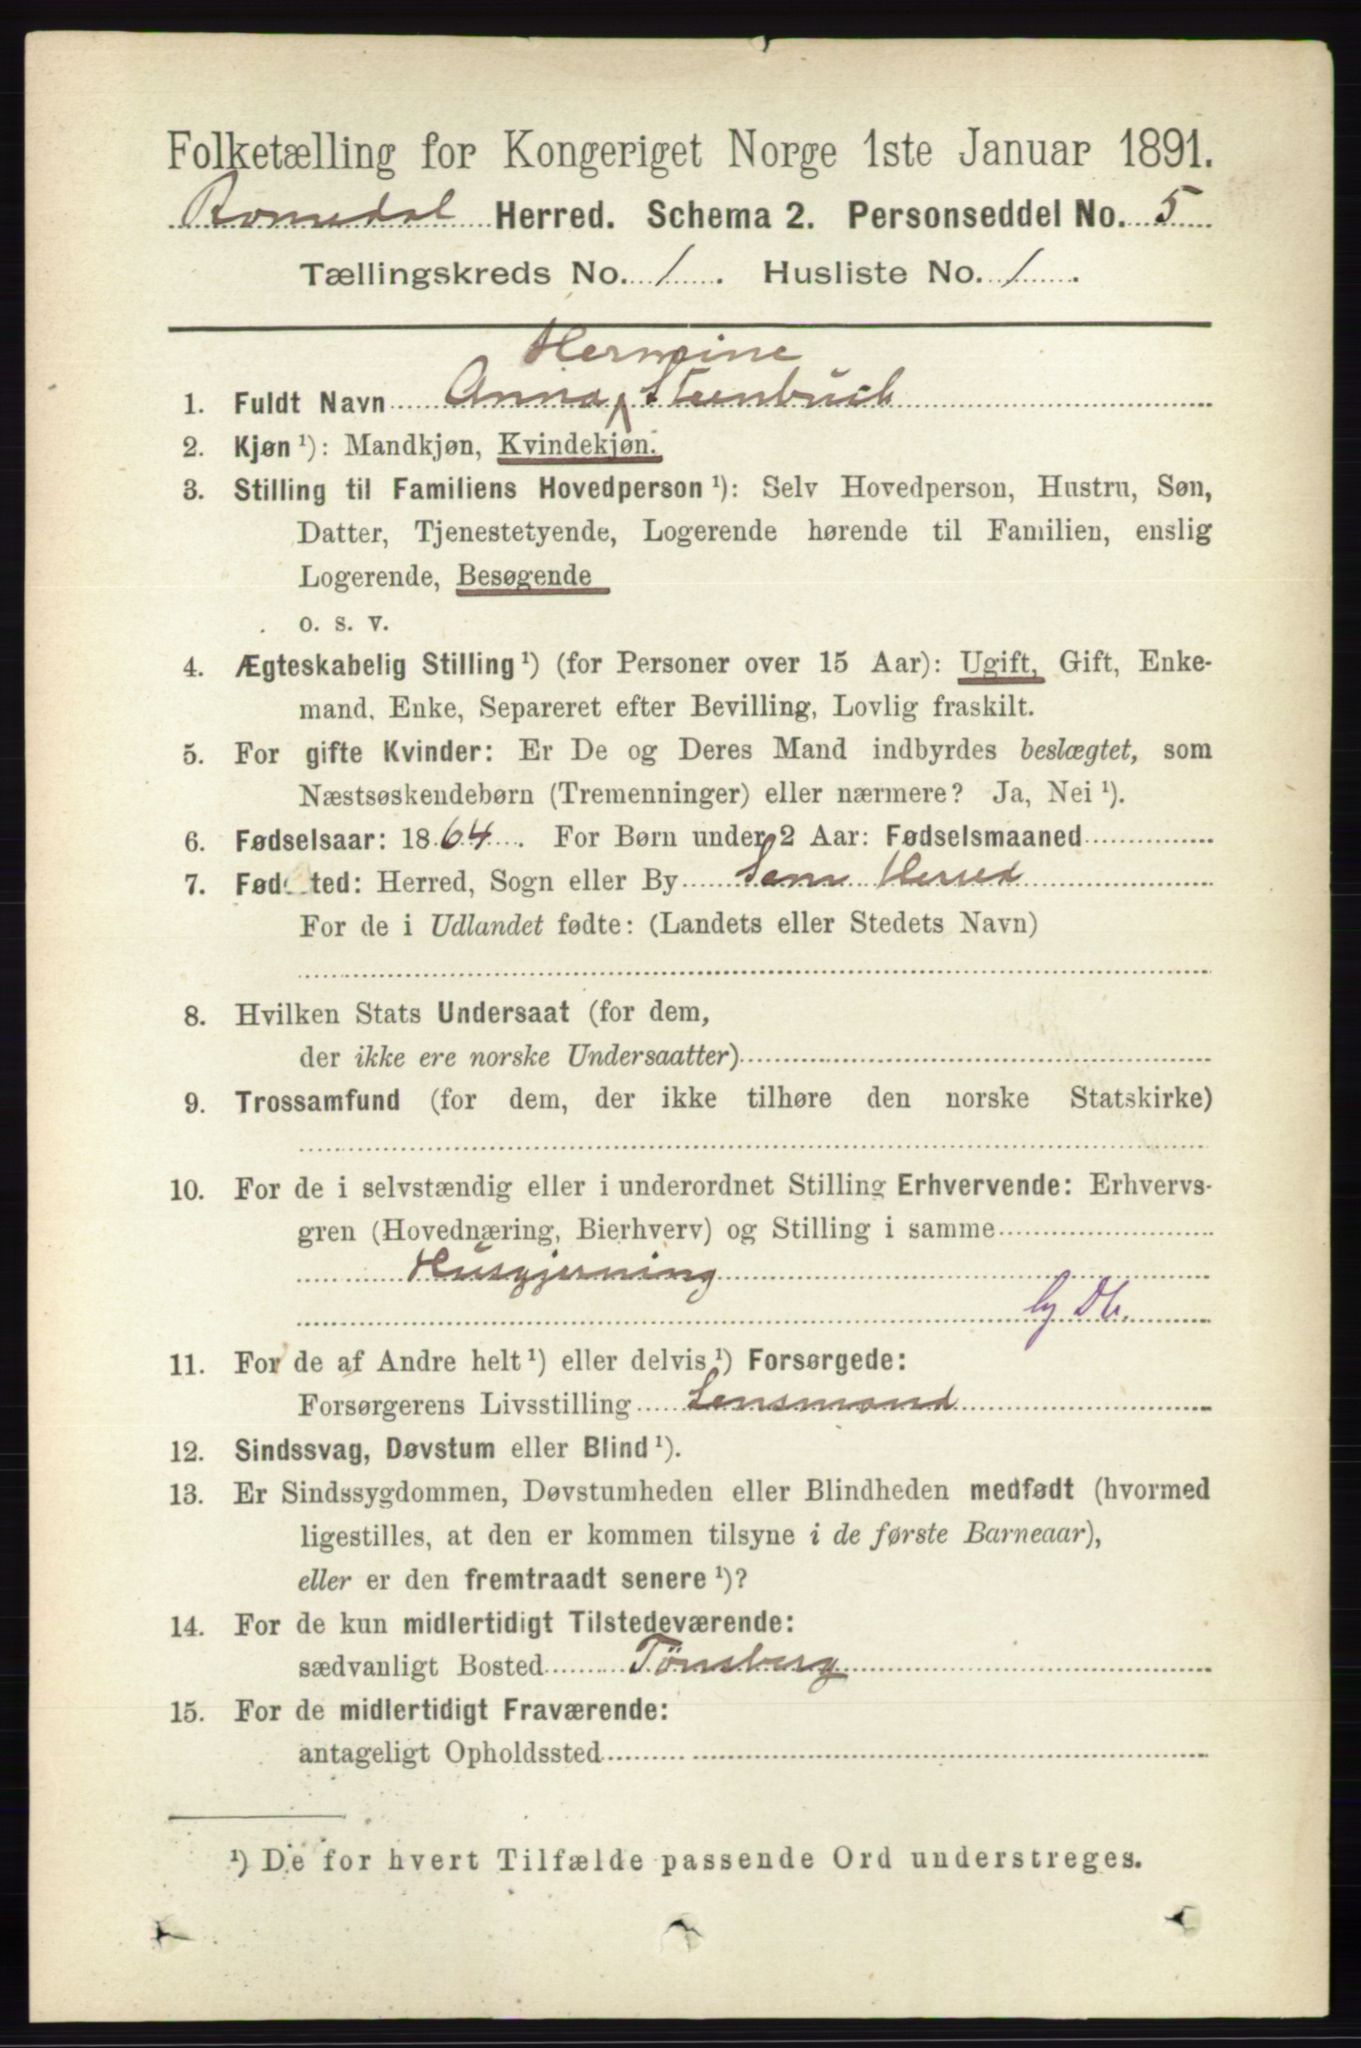 Folketælling for Kongeriget Norge 1ste Januar 1891.
Romedal Herred. Schema 2. Personseddel No. 5
Tællingskreds No. 1. Husliste No. 1.
Hermine
1. Fuldt Navn Anna Steenbuch
2. Kjøn ¹): Mandkjøn, Kvindekjøn.
3. Stilling til Familiens Hovedperson ¹): Selv Hovedperson, Hustru, Søn,
Datter, Tjenestetyende, Logerende hørende til Familien, enslig
Logerende, Besøgende
o. s. v.
4. Ægteskabelig Stilling ¹) (for Personer over 15 Aar): Ugift, Gift, Enke-
mand, Enke, Separeret efter Bevilling, Lovlig fraskilt.
5. For gifte Kvinder: Er De og Deres Mand indbyrdes beslægtet, som
Næstsøskendebørn (Tremenninger) eller nærmere? Ja, Nei ¹).
6. Fødselsaar: 1864. For Børn under 2 Aar: Fødselsmaaned
7. Fød ted: Herred, Sogn eller By Sem Herred
For de i Udlandet fødte: (Landets eller Stedets Navn)
8. Hvilken Stats Undersaat (for dem,
der ikke ere norske Undersaatter)
9. Trossamfund (for dem, der ikke tilhøre den norske Statskirke)
10. For de i selvstændig eller i underordnet Stilling Erhvervende: Erhvervs-
gren (Hovednæring, Bierhverv) og Stilling i samme
Husgjerning
11. For de af Andre helt ¹) eller delvis ¹) Forsørgede:
Forsørgerens Livsstilling Lensmand
12. Sindssvag, Døvstum eller Blind ¹).
13. Er Sindssygdommen, Døvstumheden eller Blindheden medfødt (hvormed
ligestilles, at den er kommen tilsyne i de første Barneaar),
eller er den fremtraadt senere ¹)?
14. For de kun midlertidigt Tilstedeværende:
sædvanligt Bosted Tønsberg
15. For de midlertidigt Fraværende:
antageligt Opholdssted
¹) De for hvert Tilfælde passende Ord understreges.